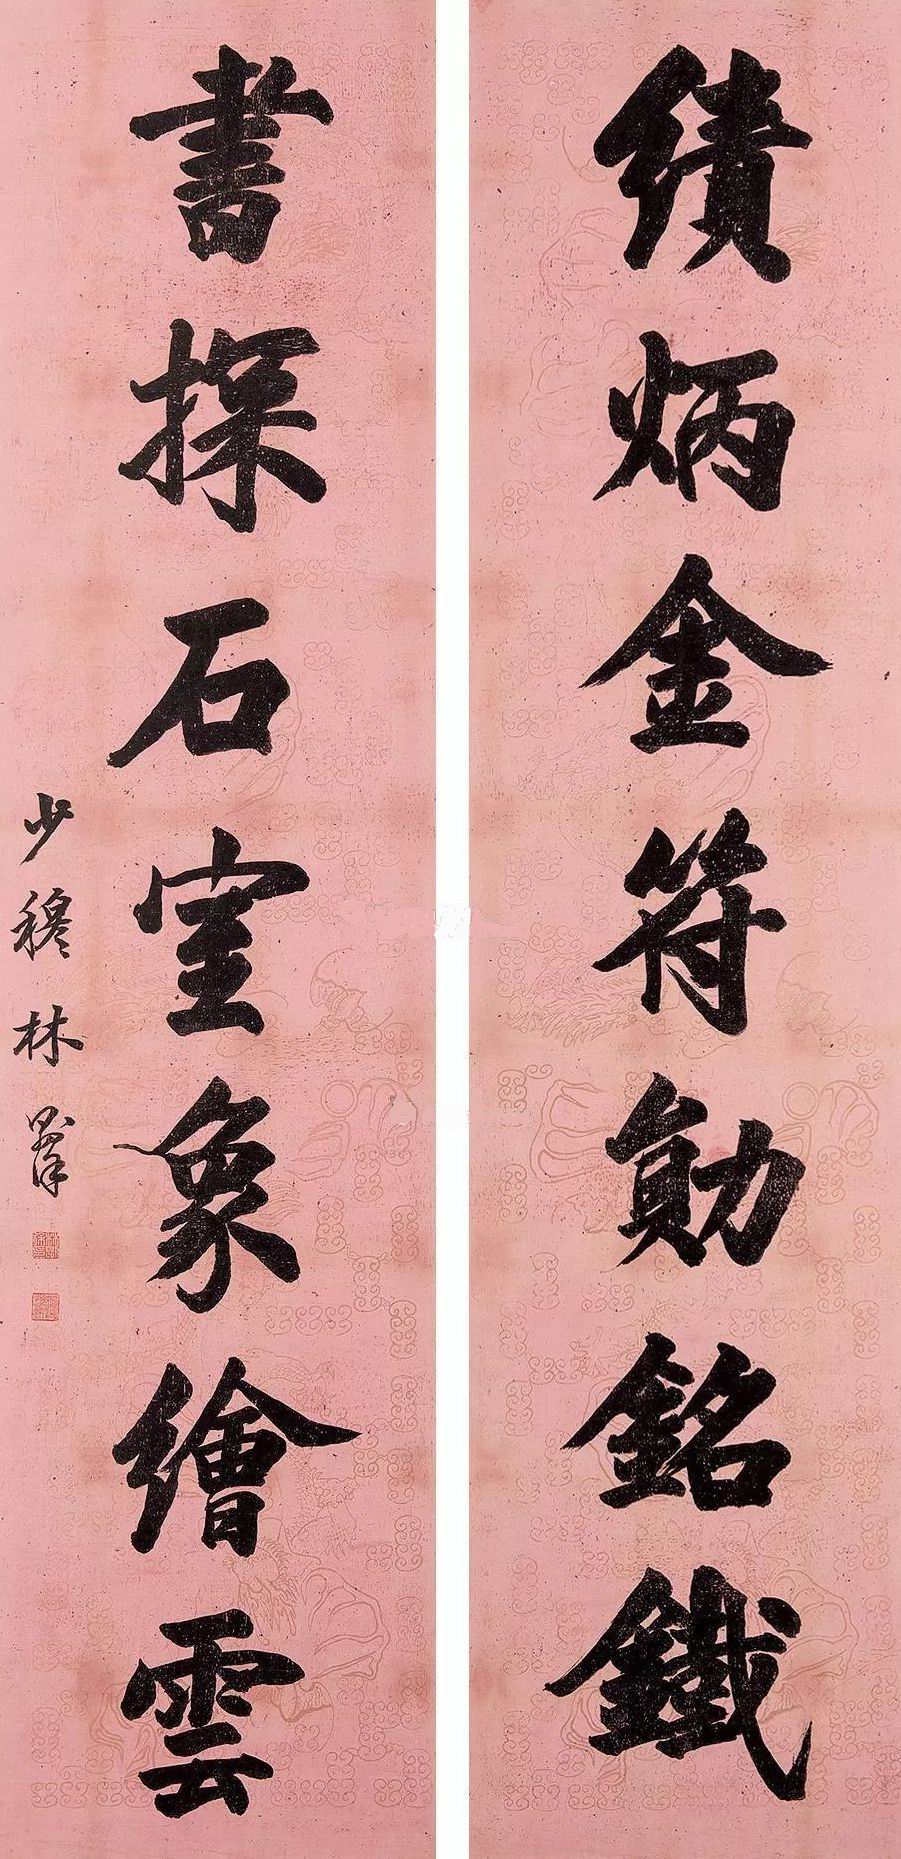 績炳金符勛銘鐵
書探石室象繪雲
少穆林則徐